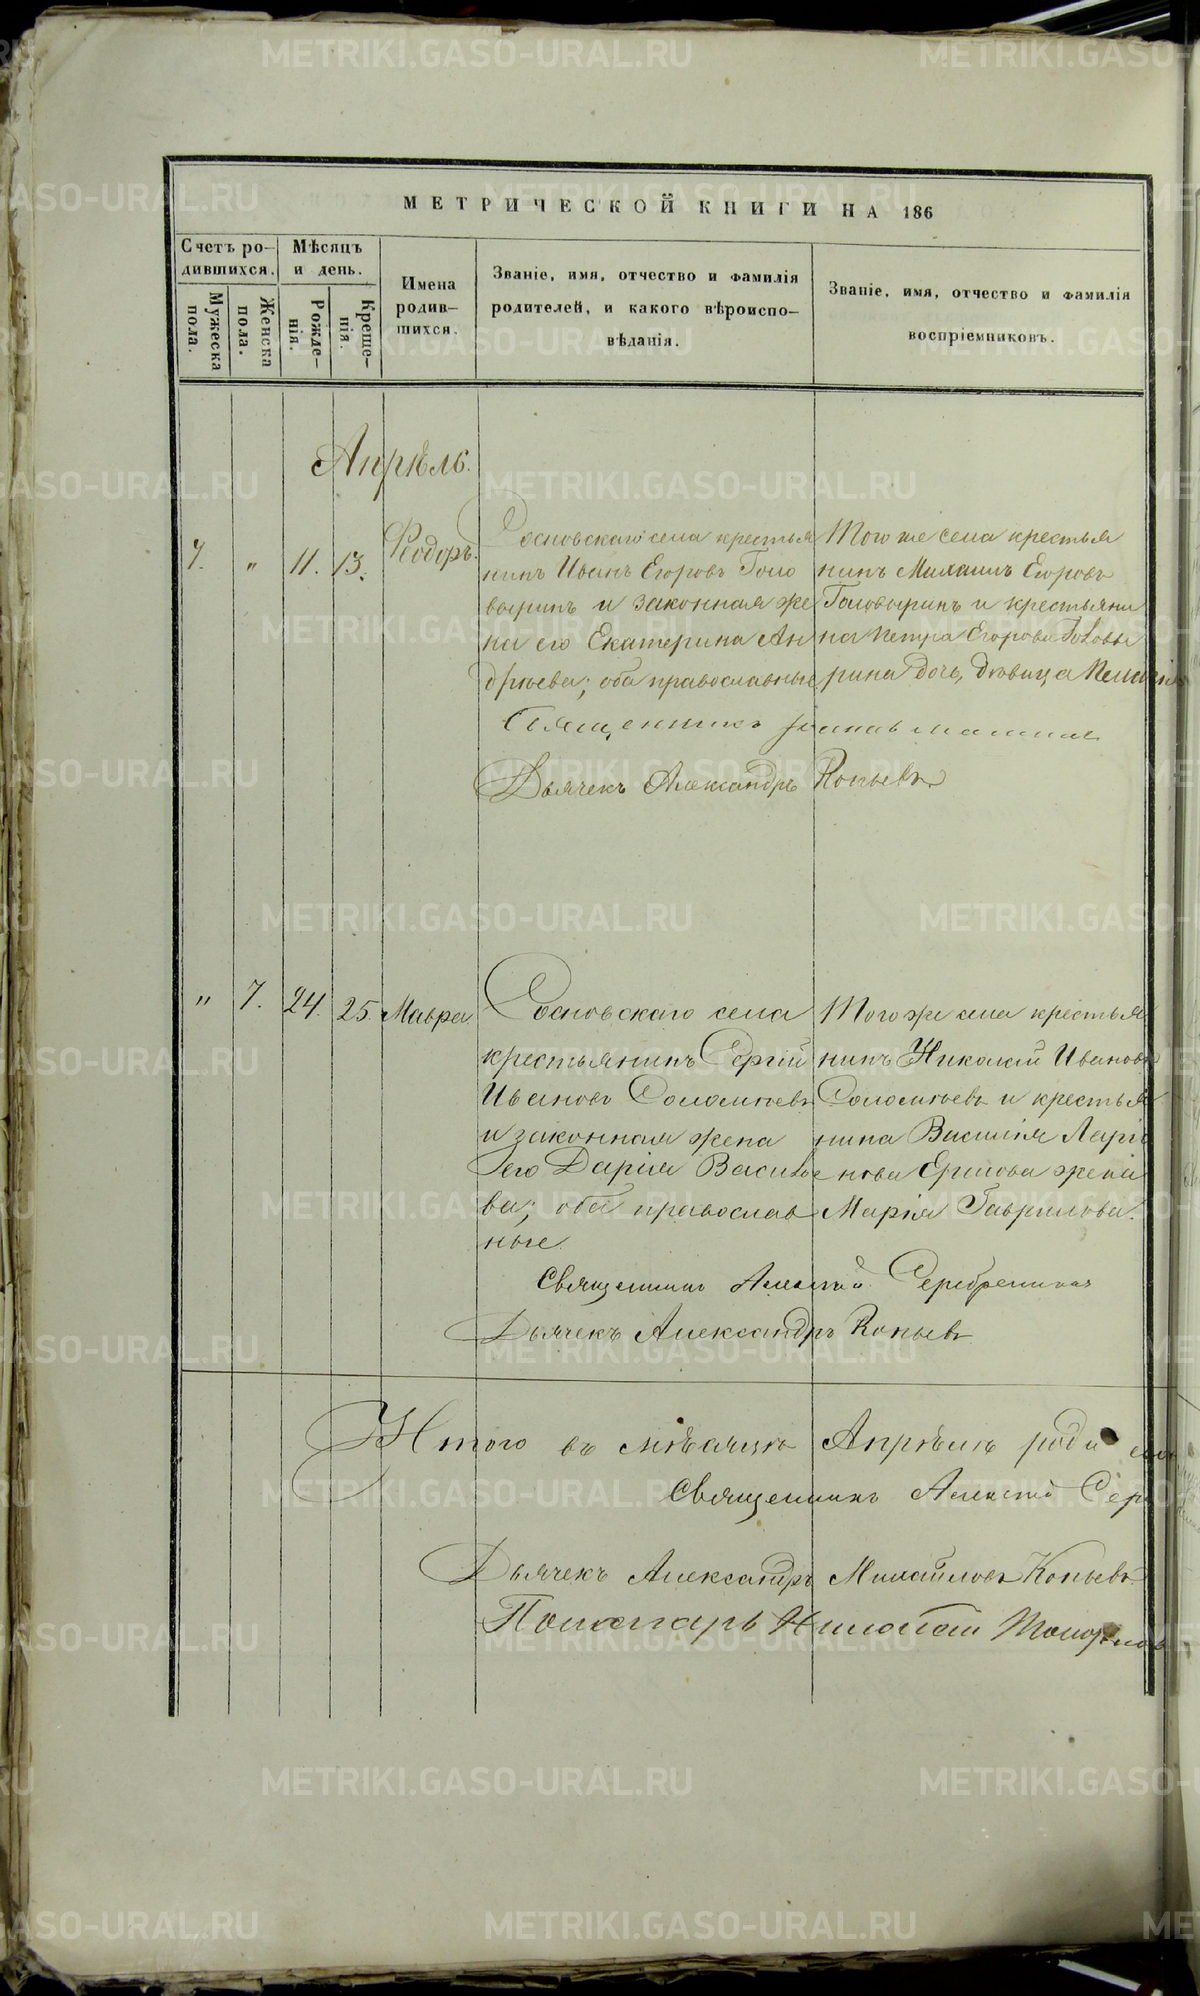 МЕТРИЧЕСКОЙ КНИГИ НА 186
Счетъ ро-
дившихся.
Мѣсяцъ
и день.
Имена
родив-
шихся.
Званіе, имя, отчество и фамилія
родителей, и какого вѣроиспо-
вѣданія.
Званіе, имя, отчество и фамилія
воспріемниковъ.
Мужеска
пола.
Женска
пола.
Рожде-
нія.
Креще-
нія.
Апрѣль.
7. " 11. 13. Ѳеодоръ.
Сосновскаго села крестья
нинъ Иванъ Егоровъ Голо
выринъ и законная же
на его Екатерина Ан
дреева; оба православные
Того же села крестья
нинъ Михаилъ Егоровъ
Головыринъ и крестьяни
на Петра Егорова Головы
рина дочь, дѣвица
Священникъ
Дьячекъ Александръ Копьевъ
" 7. 24. 25. Мавра
Сосновскаго села
крестьянинъ Сергій
Ивановъ Соломѣевъ
и законная жена
его Дарія Василье
ва; оба православ
ные
Того же села крестья
нинъ Николай Ивановъ
Соломѣевъ и крестья
нина Василія Ларі
нова Ершова жена
Марія Гаврилова.
Священникъ Алексѣй Серебренников
Дьячекъ Александръ Копьевъ
Итого въ мѣсяцѣ Апрѣлѣ роди
Священникъ Алексѣй Сер
Дьячекъ Александръ Михайловъ Копьевъ
Пономарь Николай
METRIKI.GASO-URAL.RU